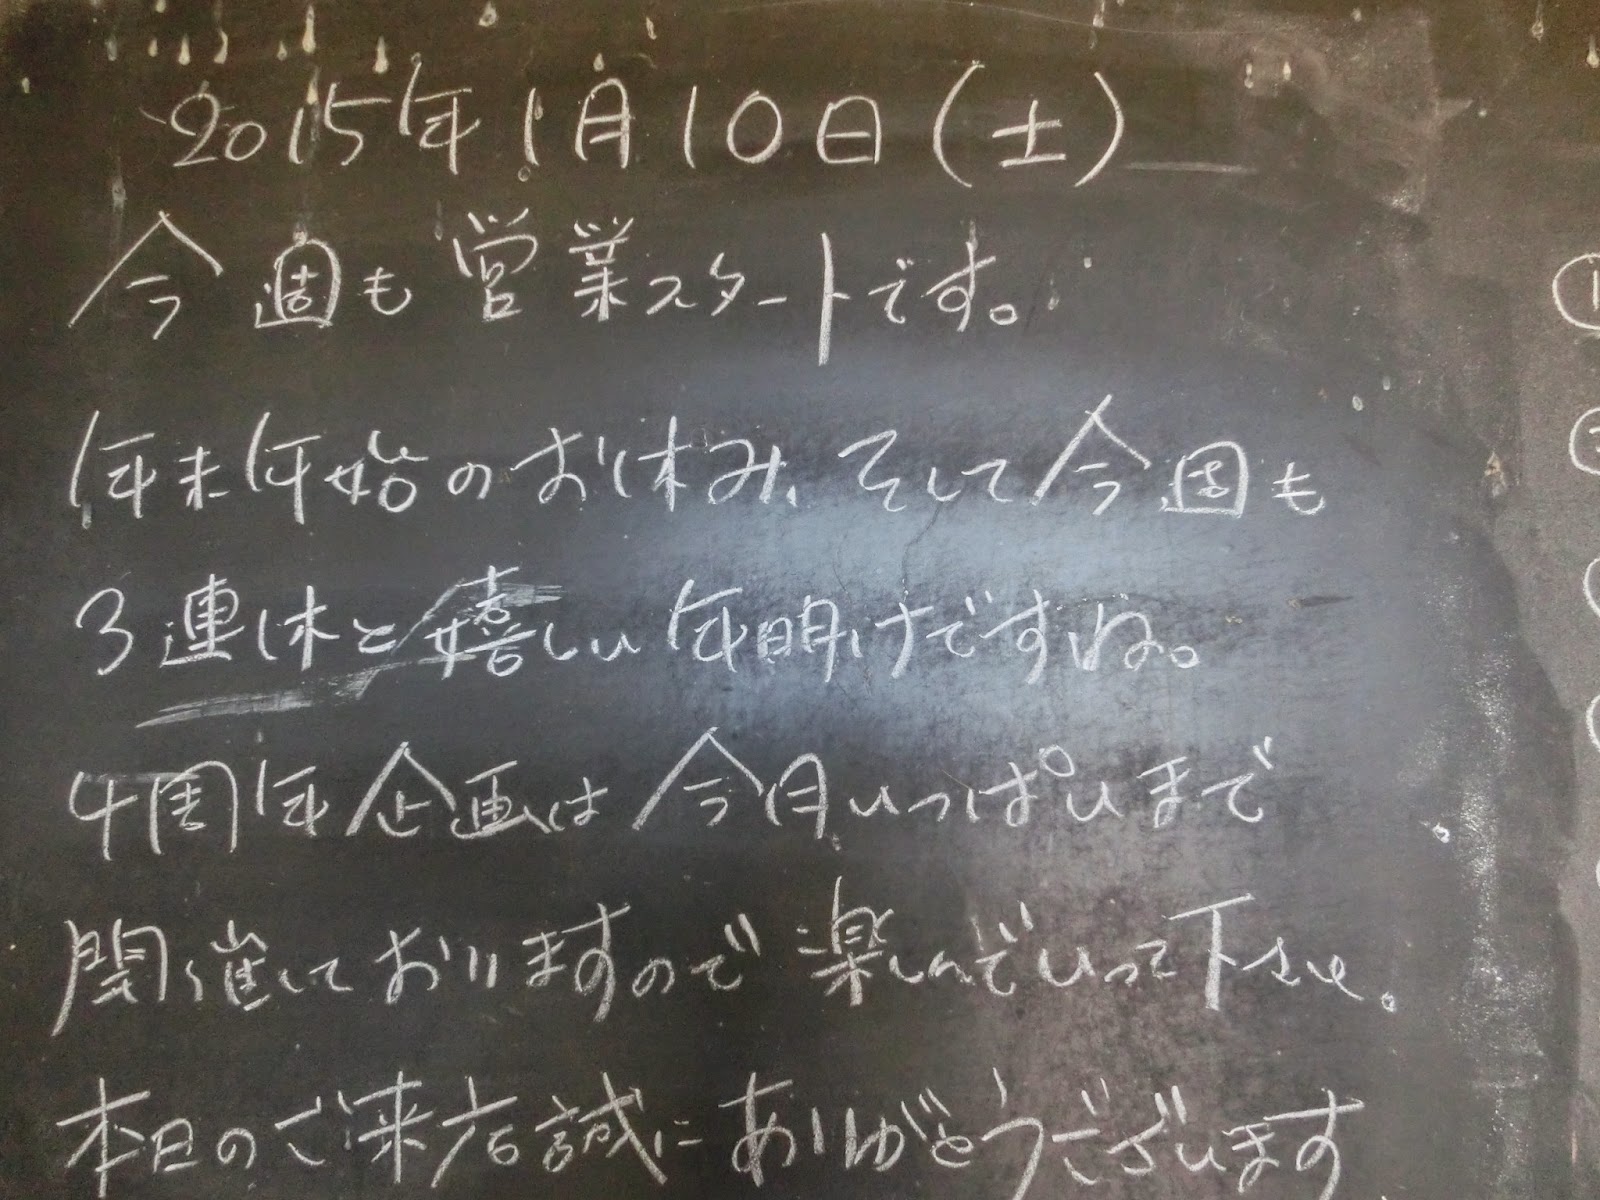 2015年1月10日(土)
今週も営業スタートです。
年末年始のお休み、そして今週も
3連休と嬉しい年明けですね。
4周年企画は今日いっぱいまで
開催しておりますので楽しんでいって下さい。
本日のご来店誠にありがとうございます
①